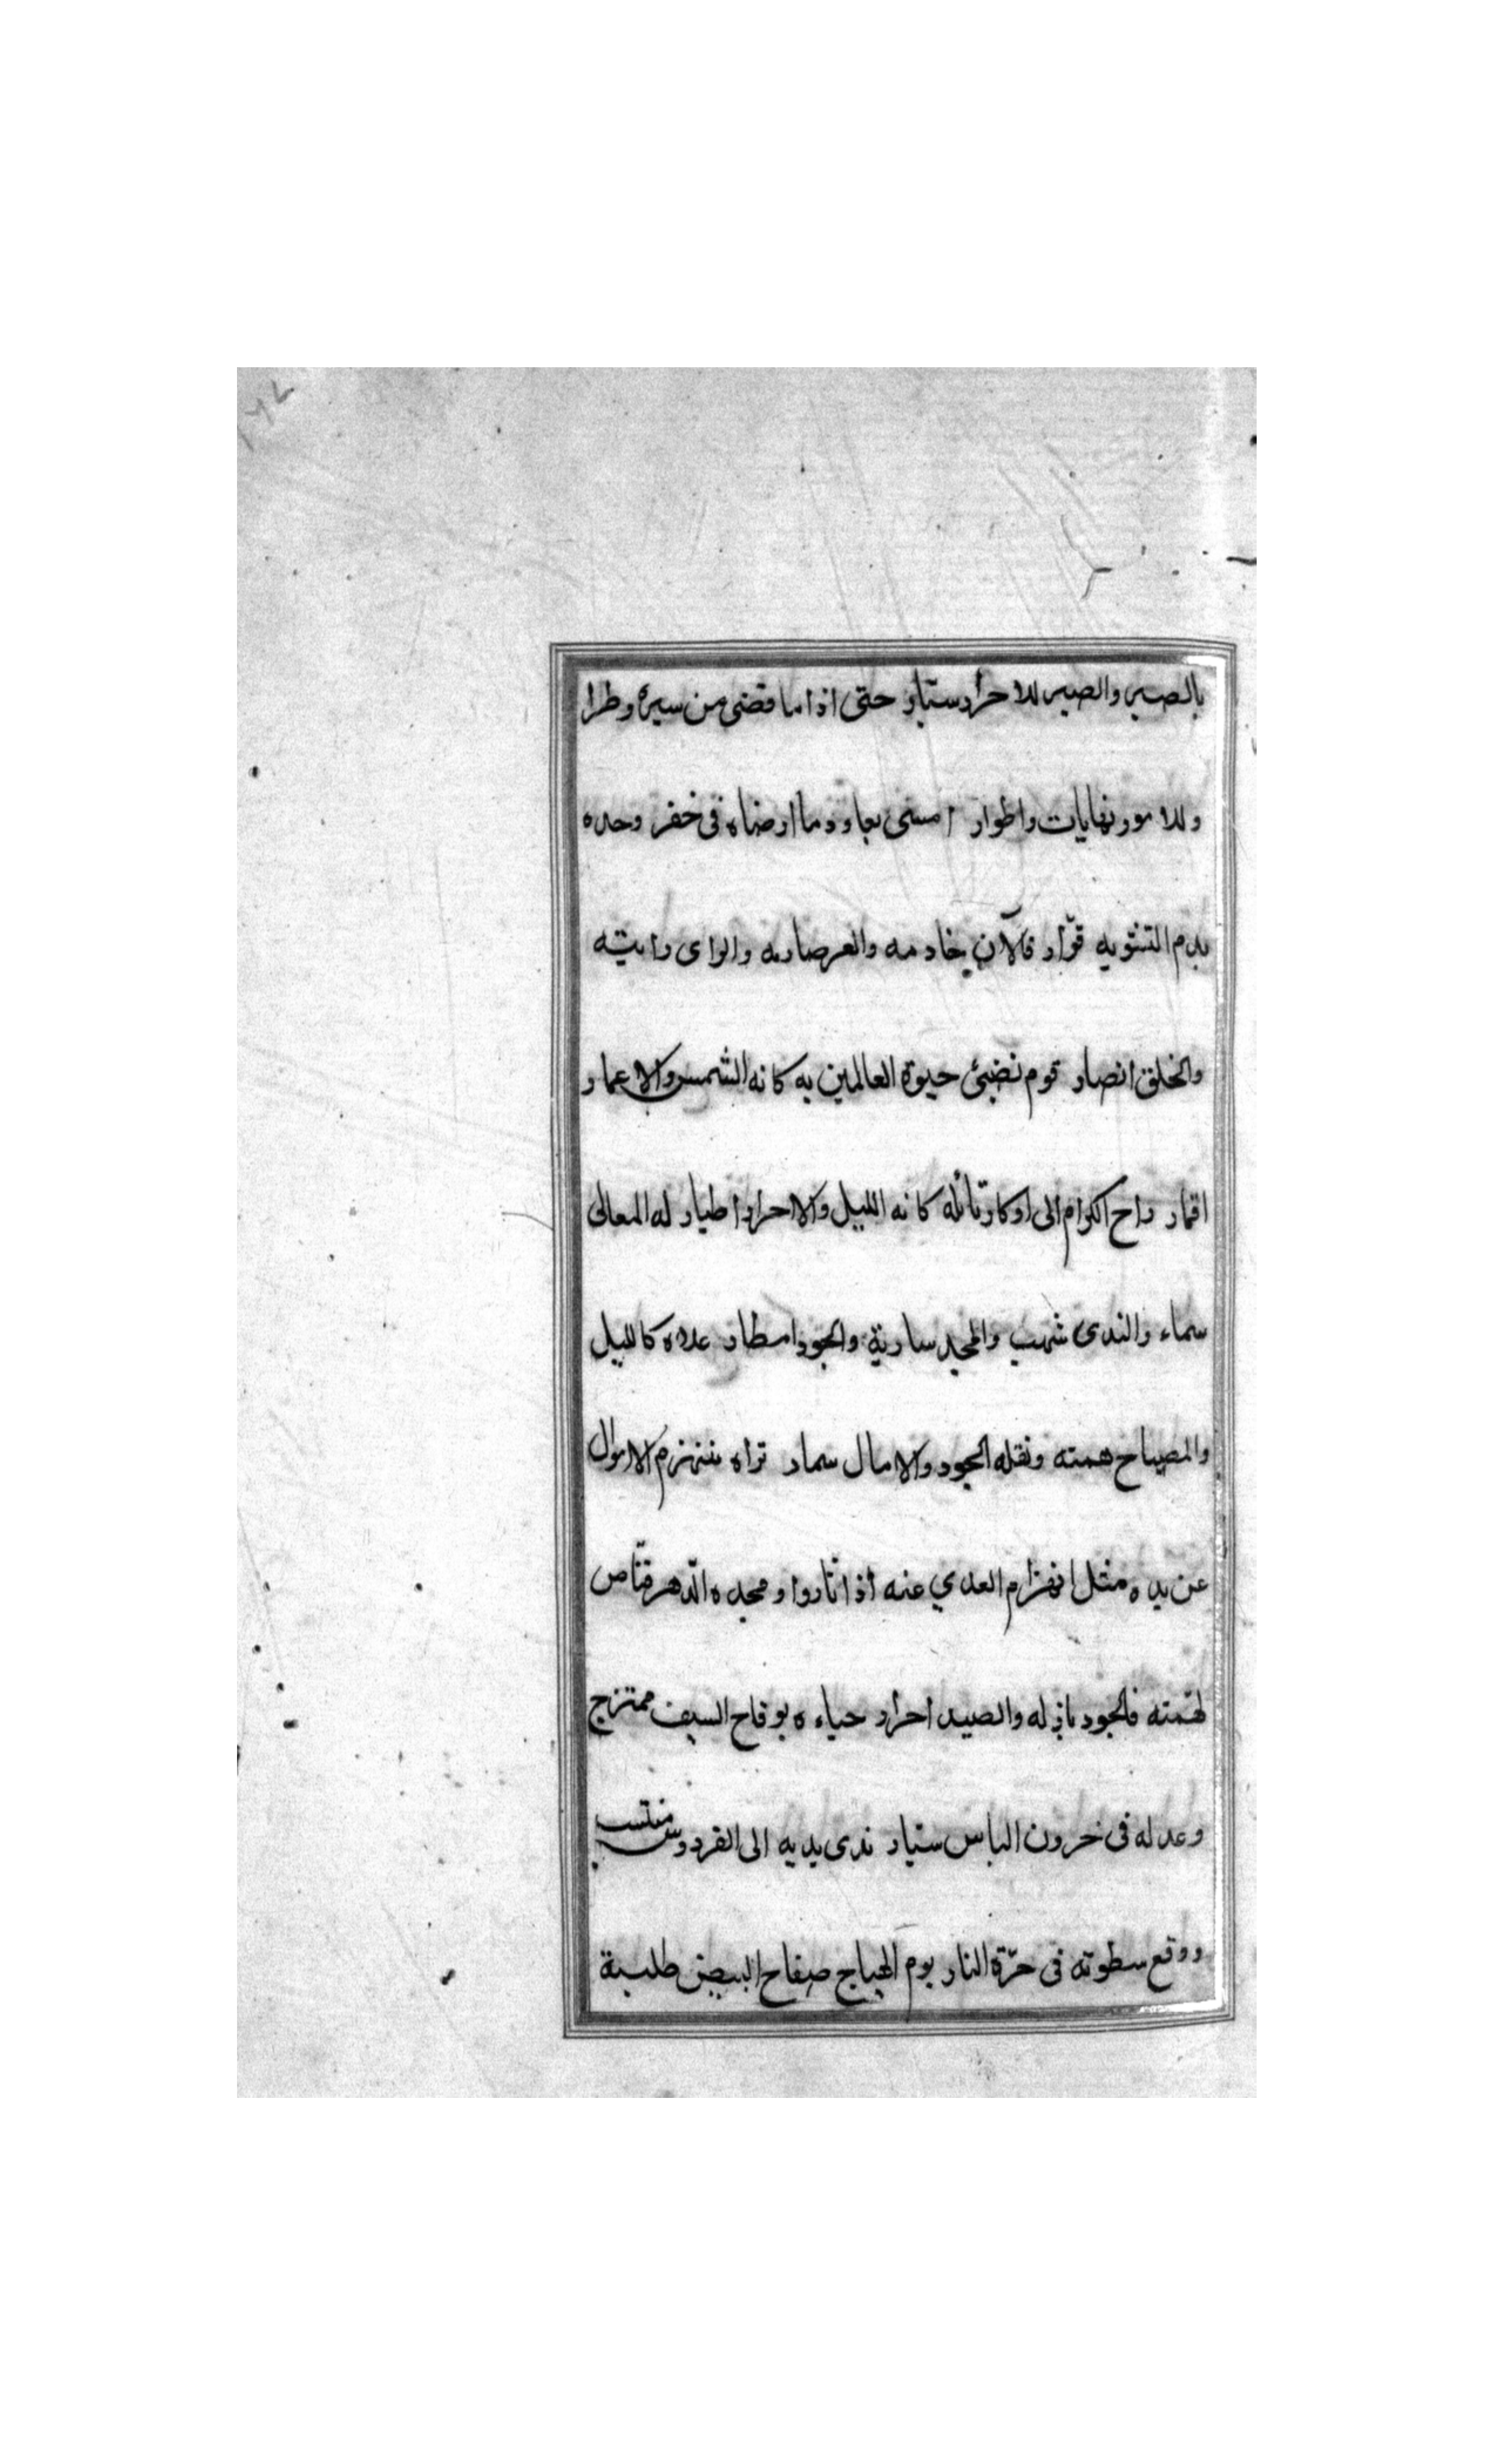 بالصبر والصبر للاحرار ستار حتى اذا ما قضى من سيره وطرا
وللامور نهايات واطوار امسى يعاود ما ارضاه فى خفر وحده
بدم التشويه قوّار فالآن خادمه والعر صارمه والراى رايته
والخلق انصار قوم نضيئ حيوة العالمين به كانه الشمس والاعمار
اقمار راح الكرام الى اوكار نائله كانه الليل والاحرار اطيار له المعالى
سماء والندى شهب والمجد سارية والجود امطار علاه كالليل
والمصباح همته ونقله الجود والامال سمار تراه ينهزم الاموال
عن يده مثل انهزام العدي عنه اذا ثاروا ومجده الدّهر قنّاص
لهمّته فالجود باذله والصيد احرار حياءه بوقاح السيف ممتزج
وعدله فى خرون الباس ستيار ندى يديه الى الفردوس منتسب
ووقع سطوته فى حرّة النار يوم الهياج صفاح البيض طلبة